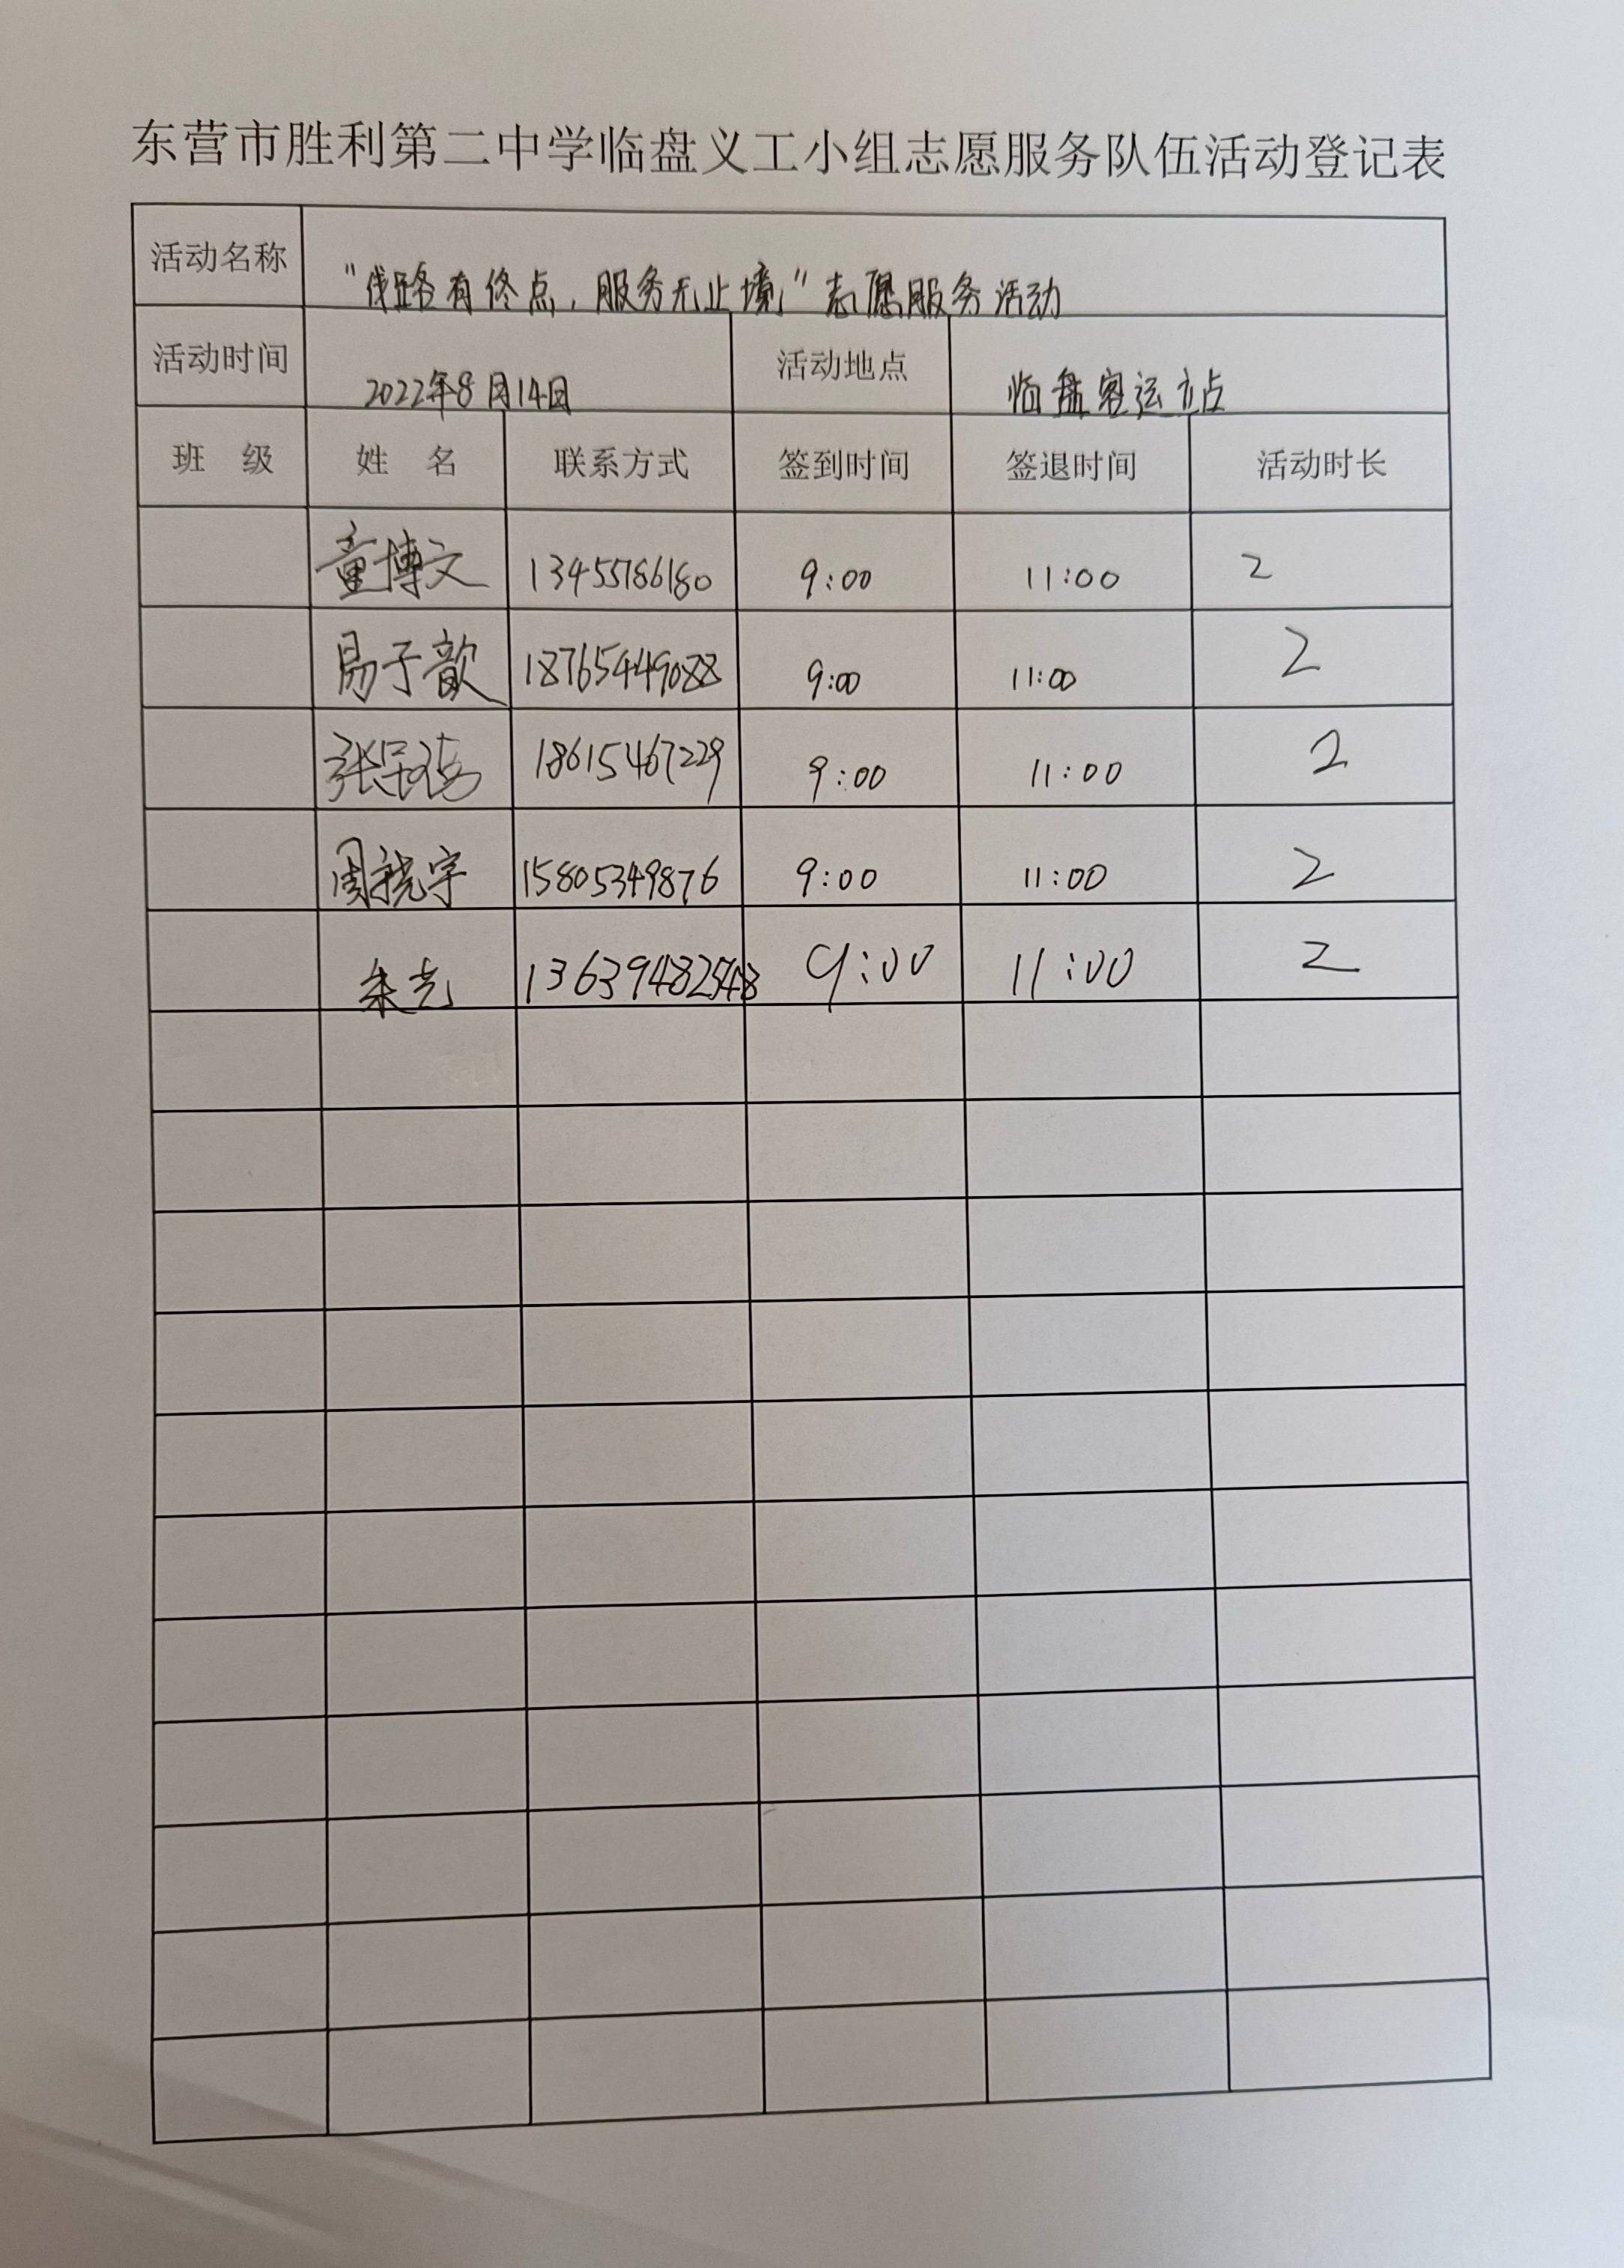 东营市胜利第二中学临盘义工小组志愿服务队伍活动登记表
活动名称 "线路有终点，服务无止境"志愿服务活动
活动时间 2022年8月14日 活动地点 临盘客运站点
班 级 姓 名 联系方式 签到时间 签退时间 活动时长
童博文 13455786180 9:00 11:00 2
易子歆 18765449088 9:00 11:00 2
张 18615467229 9:00 11:00 2
周 宇 15805349876 9:00 11:00 2
朱 13639482548 9:00 11:00 2